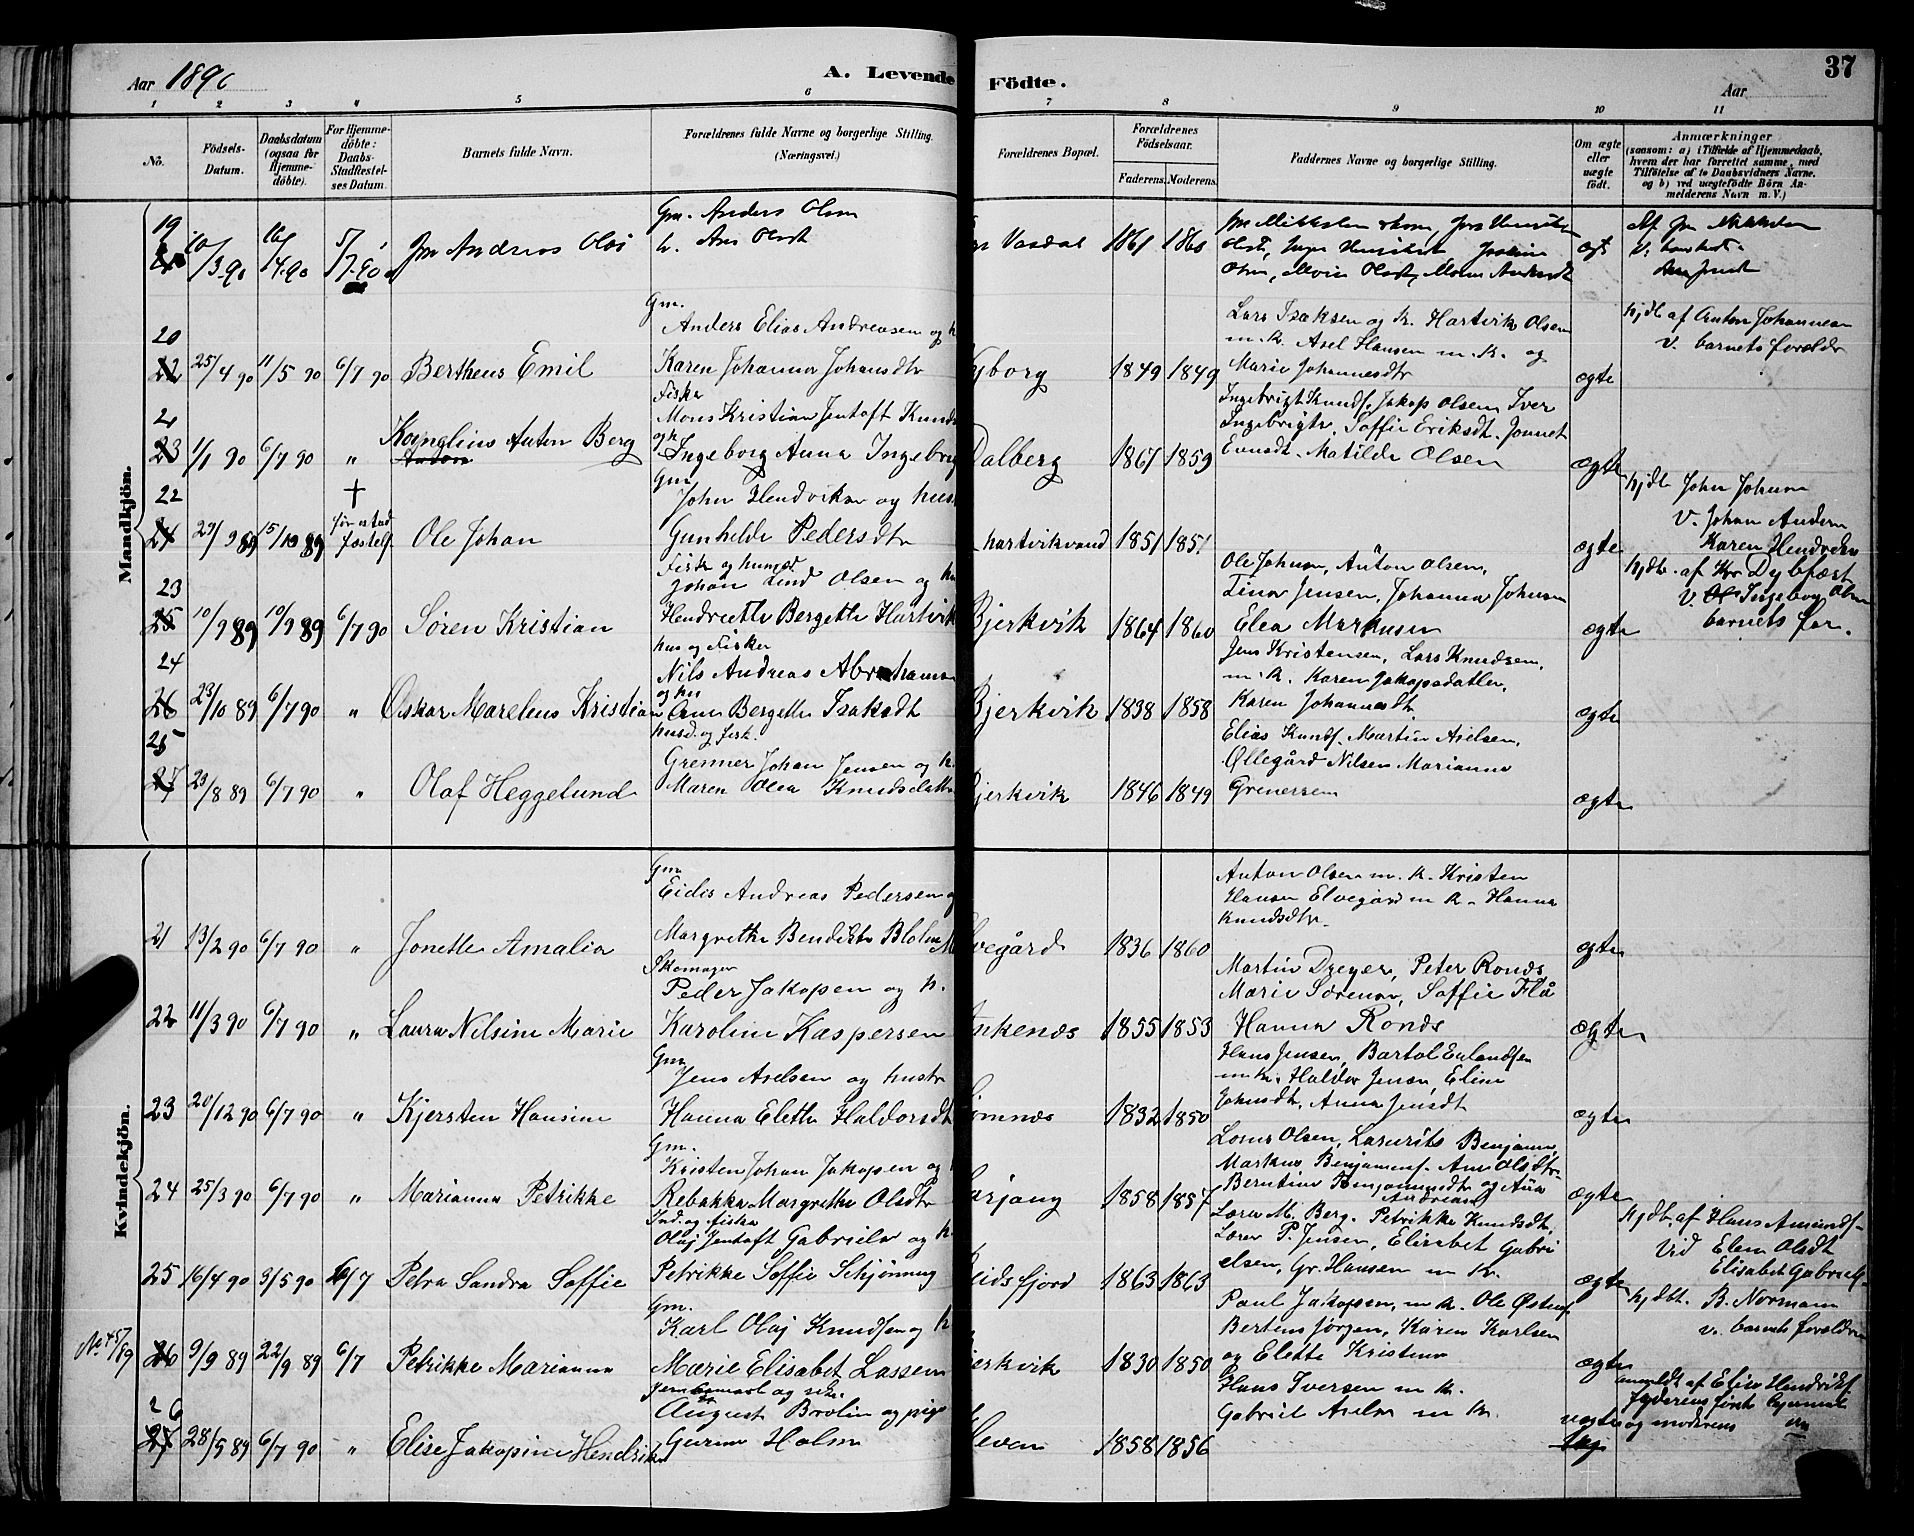 Aar 189
A. Levende Födte.
37
Aar
1 2 3 4 5 6 7 8 9 10 11
No.
Födsels-Datum.
Daabsdatum (ogsaa for Hjemmedöbte).
For Hjemmedöbte: Daabs-Stadfæstelses Datum.
Barnets fulde Navn.
Forældrenes fulde Navne og borgerlige Stilling. (Næringsvei.)
Forældrenes Bopæl.
Forældrenes Födselsaar.
Faderens. Moderens.
Faddernes Navne og borgerlige Stilling.
Om ægte eller uægte födt.
Anmærkninger
(saasom: a) i Tilfælde af Hjemmedaab, hvem der har forrettet samme, med Tilföielse af to Daabsvidners Navne. og b) ved uægtefödte Börn Anmelderens Navn m. V.)
Mandkjön.
19
10/3 90 16/4 90 5/7 90 Andreas
Gm. Anders Olsen
Vasdal 1861
20
Gm.
Anders Elias Andreasen og h
25/4 90 11/5 90 6/7 90 Bertheus Emil
Karen Johanna Johansdtr
yborg 1849 1849
Lars Isaksen og K. Hartvik Olsen
m. K. Axel Hansen m. K. og
Marie Johannesdtr
ægte
hjdb af Anton Johannesen
v. barnets forældr
21
Fisker
Mons Kristian Jentoft Knuds
23 1/1 90 6/7 90 " Anton Berg
Ingeborg Anna Ingebrig
Dalberg 1867 1859
Ingebrigt Knuds. Jakop Olsen Iver
Ingebrigts. Soffie Eriksdt. Jonnet
Evensdt. Matilde Olsen
ægte
22
Gm
John Hendriksen og hust
24 29/9 89 15/10 89 Ole Johan
Gunhilde Pedersdtr
hartvikvand 1851 1851
ægte
hjdb John Johnsen
v. Johan Anders
Karen Hendriks
23
Fisk og husmd
Johan Lind Olsen og hu
25 10/9 89 19/9 89 6/7 90 Søren Kristian
Hendrette Bergette Hartvik
Bjerkvik 1864 1860
Ole Johnsen, Anton Olsen,
Lina Jensen, Johanna Johnsen
Elea Markusen
ægte
hjdb. af Kr Dybfæst
v. Ingeborg Olsen
barnets far.
24
hus og Fisker
Nils Andreas Abrahams
og hu
26 23/10 89 6/7 90 " Oskar Marelius Kristian
Ane Bergette Isaksdt
Bjerkvik 1838 1858
Jens Kristensen, Lars Knudsen,
m. K. Karen Jakopsdatter,
Karen Johannesdtr
ægte
25
husd. og fisk.
Grenner Johan Jensen og h.
27 23/8 89 6/7 90 " Olaf Heggelund
Maren Olea Knudsdatter
jerkvik 1846 1849
Elias Knuds. Martin Axelsen,
Øllegård Nilsen Marianna
Grenersen
ægte
Kvindekjön.
Gm
Eidis Andreas Pedersen og
21 13/2 90 6/7 90 " Jonette Amalia
Margrethe Bendikte
vegård 1836 1860
Anton Olsen m. K. Kristen
Hansen Elvegård m K. Hanna
Knudsdtr.
ægte
Skomager
Peder Jakopsen og h.
22 11/3 90 6/7 90 " Laura Nilsine Marie
Karoline Kaspersen
Ankenes 1855 1853
Martin Dreyer, Peter Ronds
Marie Sørensen, Soffie Flå
Hanna Ronds
ægte
Gm
Jens Axelsen og hustr
23 20/12 90 6/7 90 " Kjersten Hansine
Hanna Elette Haldorsdt
ømnes 1832 1850
Hans Jensen, Bartol Erlandsen
m K. Haldor Jensen, Eline
Johnsdt. Anna Jensdt
ægte
Gm.
Kristen Johan Jakopsen og
24 25/3 90 6/7 90 " Marianna Petrikke
Rebakka Margrethe Olsdtr
arjang 1858 1857
Lorns Olsen, Benjamin,
Markus Benjamins. Ane Olsdtr
Berntine Benjaminsdtr og Ana
Andreasen
ægte
Ind. og fisker
Olaj Jentoft Gabrielsen og h.
25 16/4 90 3/5 90 6/7 Petra Sandra Soffie
Petrikke Soffie Schjønning
eidsfjord 1863 1863
Lorn M. Berg. Petrikke Knudsdt,
Loren P. Jensen, Elisabet Gabri
elsen, Gr. Hansen m K.
ægte
hjdb. af Hans Amunds.
Vid Elen Olsdt
Elisabet Gabriels
No 457/89
Gm.
Karl Olaj Knudsen og h
26 9/9 89 22/9 89 6/7 Petrikke Marianna
Marie Elisabet Lassen
jerkvik 1830 1850
Paul Jakopsen, m K. Ole Østens
Bertens Jørgen, Karen Karlsen
og Elette Kristens
ægte
hjdbt. B. Normann
v. barnets forældre
26
August Brolin og pige
27 28/5 89 6/7 90 " Elise Jakopine Hendrik
Holm
1858 1856
Hans Iversen m K.
Gabriel Axelsen m K.
uægte
anmeldt af Elise Hendriks.
og moderens